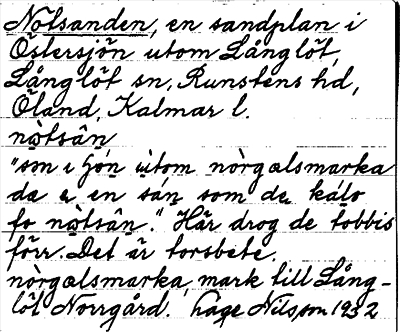 Nötsanden, en sandplan i
Östersjön utom Långlöt,
Långlöt sn, Runstens hd,
Öland, Kalmar l.
nǫ̀tsân
"som i jön ùtom nòrgælsmarka
da æ en sán som de kálo
fo nǫ̀tsân." Här drog de tobbis
förr. Det är torsbete.
nòrgælsmarka, mark till Lång-
löt Norrgård. Åge Nilsson 1932